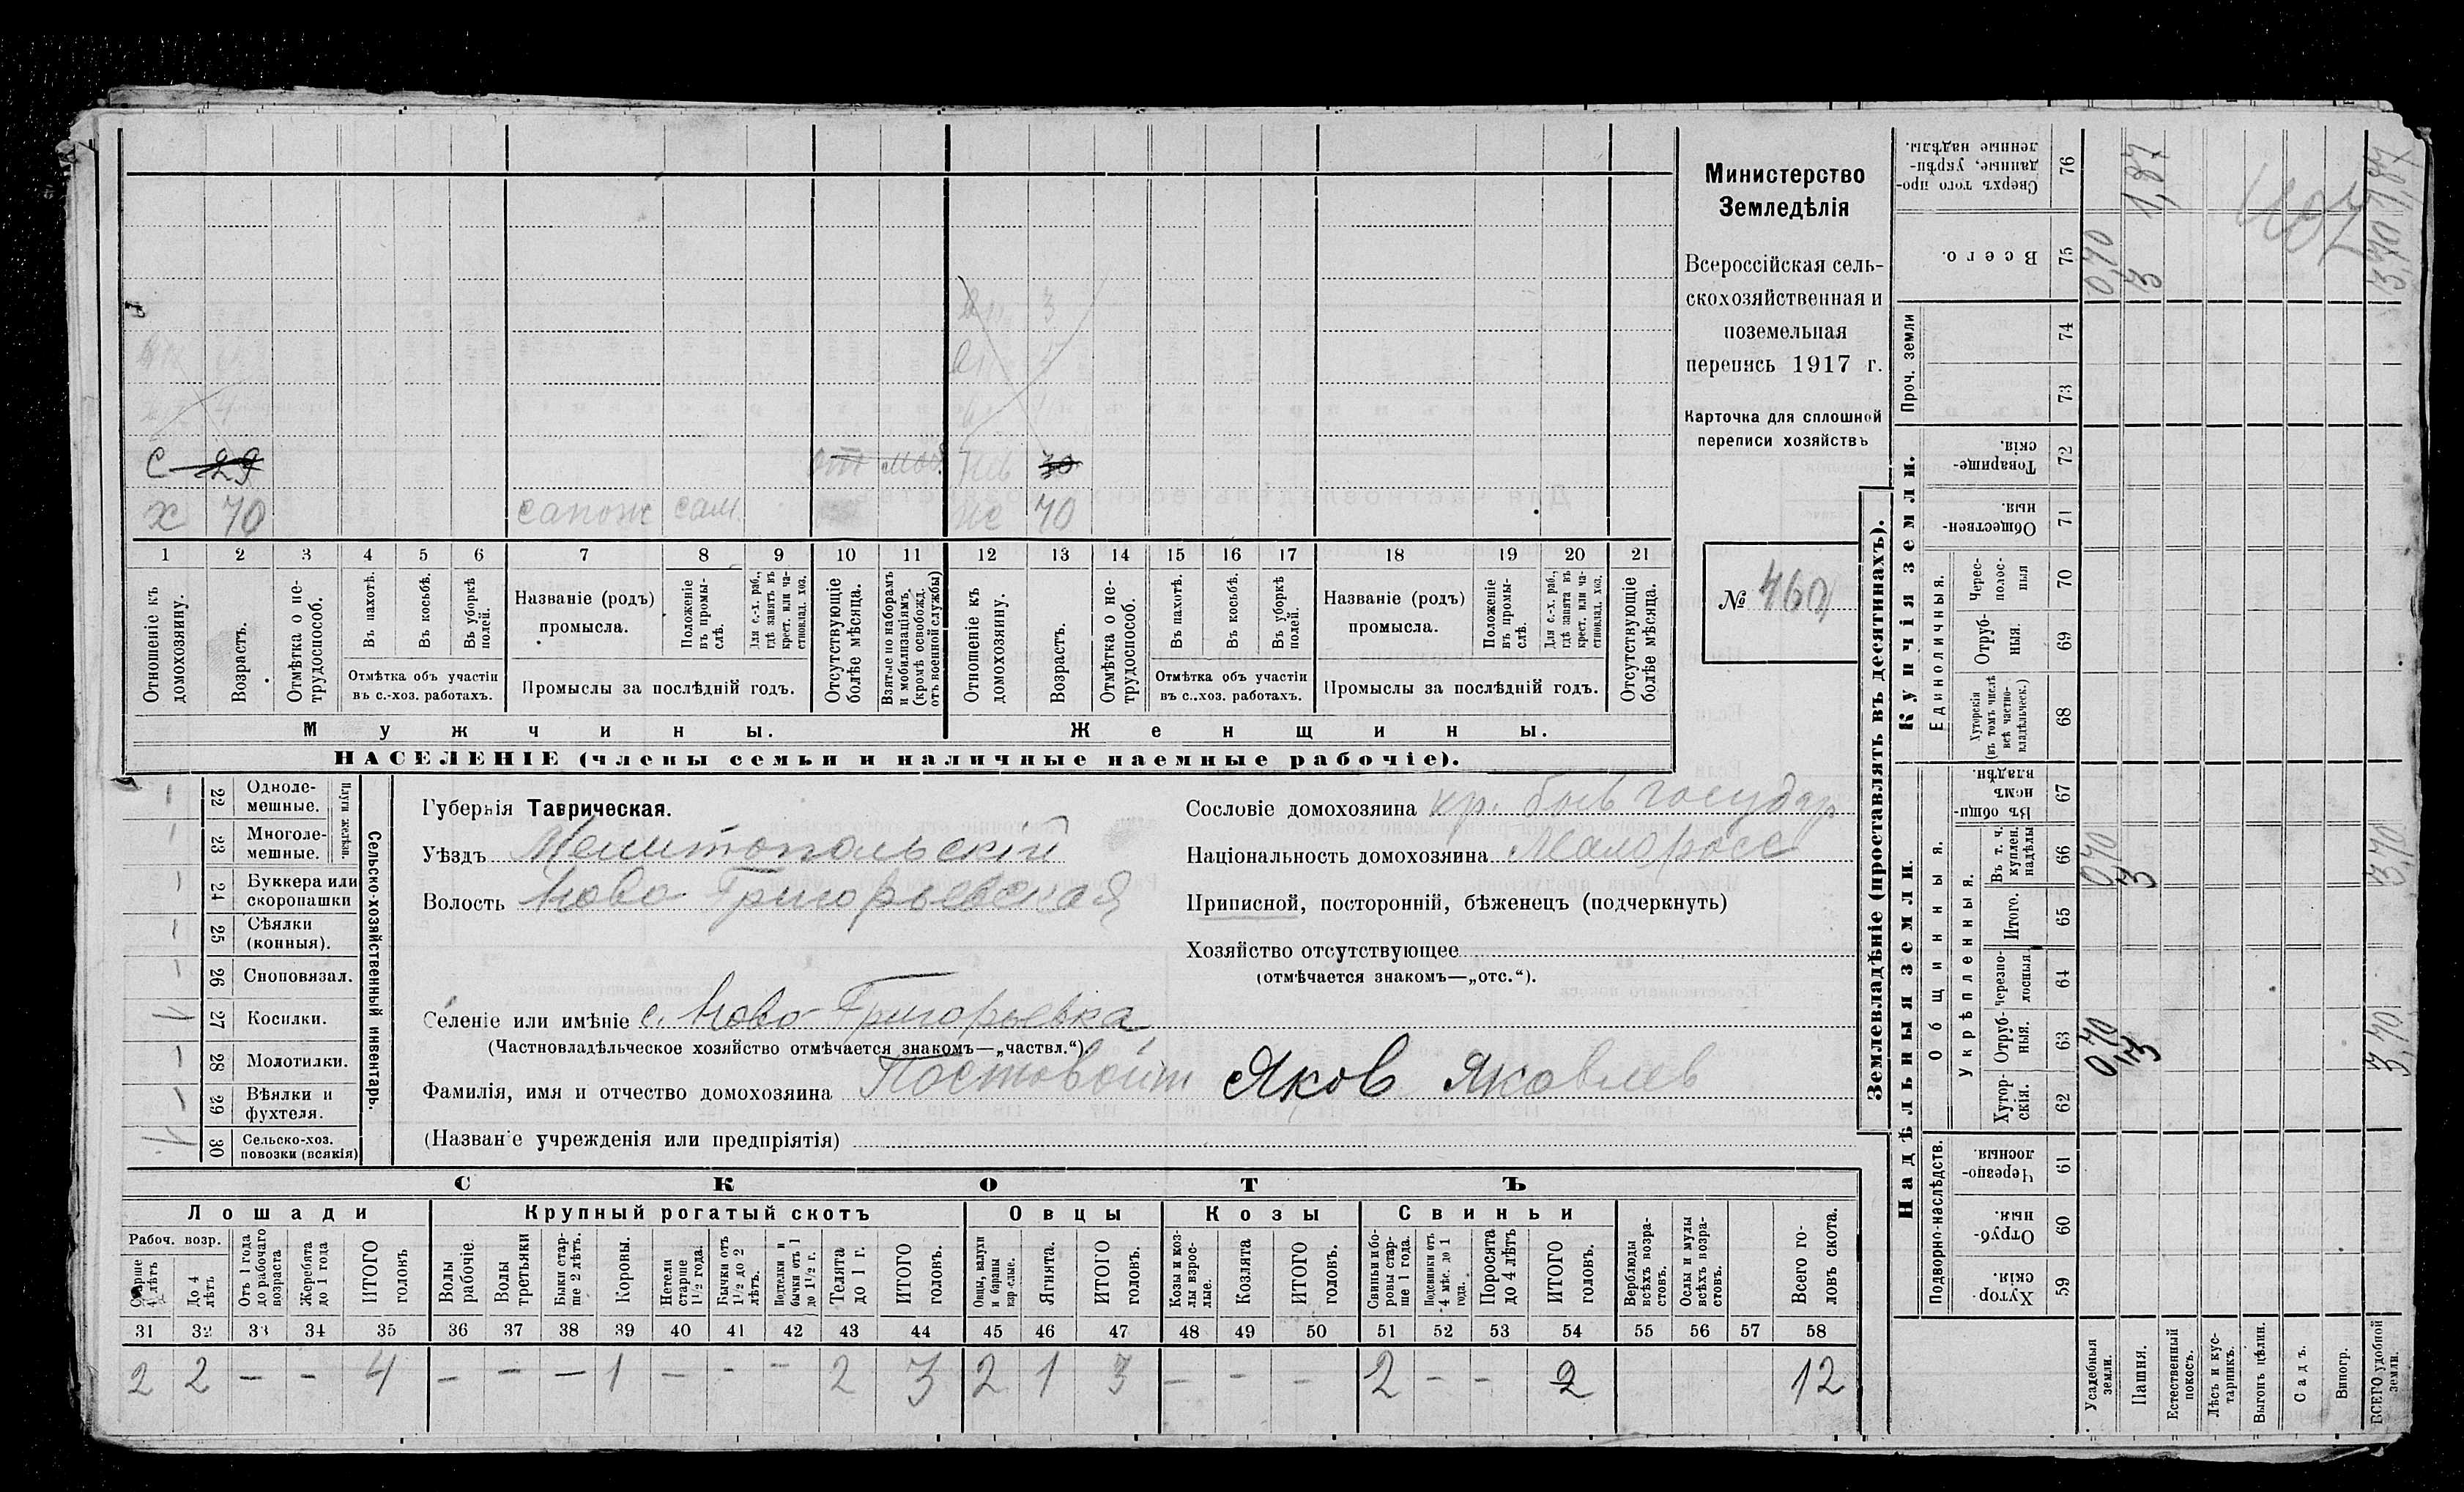 Министерство
Земледѣлія
Всероссійская сель-
скохозяйственная и
поземельная
перепись 1917 г.
Карточка для сплошной
переписи хозяйствъ
№ 460
С 29 от моб. нев 30
х 70 сапож сам. же 70
1 2 3 4 5 6 7 8 9 10 11 12 13 14 15 16 17 18 19 20 21
Отношеніе къ домохозяину.
Возрастъ.
Отмѣтка о не-трудоспособ.
Въ пахотѣ.
Въ косьбѣ.
Въ уборкѣ полей.
Отмѣтка объ участіи въ с.-хоз. работахъ.
Названіе (родъ) промысла.
Положеніе въ промы-слѣ.
Для с.-х. раб., гдѣ занятъ въ крест. или ча-стновлад. хоз.
Промыслы за послѣдній годъ.
Отсутствующіе болѣе мѣсяца.
Взятые по наборамъ и мобилизаціямъ (кромѣ освобожд. отъ военной службы)
Отношеніе къ домохозяину.
Возрастъ.
Отмѣтка о не-трудоспособ.
Въ пахотѣ.
Въ косьбѣ.
Въ уборкѣ полей.
Отмѣтка объ участіи въ с.-хоз. работахъ.
Названіе (родъ) промысла.
Положеніе въ промы-слѣ.
Для с.-х. раб., гдѣ занята въ крест. или ча-стновлад. хоз.
Промыслы за послѣдній годъ.
Отсутствующіе болѣе мѣсяца.
Мужчины. Женщины.
НАСЕЛЕНІЕ (члены семьи и наличные наемные рабочіе).
22 Одноле-мешные.
23 Многоле-мешные.
Плуги желѣзн.
24 Буккера или скоропашки
25 Сѣялки (конныя).
26 Сноповязал.
27 Косилки.
28 Молотилки.
29 Вѣялки и фухтеля.
30 Сельско-хоз. повозки (всякія)
Сельско-хозяйственный инвентарь.
Губернія Таврическая.
Уѣздъ Мелитопольскій
Волость Ново Григорьевская
Селеніе или имѣніе с. Ново-Григорьевка
(Частновладѣльческое хозяйство отмѣчается знакомъ—„частвл.“).
Фамилія, имя и отчество домохозяина Постовойт Яков Яковлев
(Названіе учрежденія или предпріятія)
Сословіе домохозяина кр. быв государ
Національность домохозяина Малоросс
Приписной, посторонній, бѣженецъ (подчеркнуть)
Хозяйство отсутствующее
(отмѣчается знакомъ—„отс.“).
СКОТЪ
Лошади Крупный рогатый скотъ Овцы Козы Свиньи
Рабоч. возр.
Старше 4 лѣтъ
До 4 лѣтъ
Отъ 1 года до рабочаго возраста
Жеребята до 1 года
ИТОГО головъ
Волы рабочіе.
Волы третьяки
Быки стар-ше 2 лѣтъ.
Коровы.
Нетели старше 1½ года.
Бычки отъ 1½ до 2 лѣтъ.
Подтелки и бычки отъ 1 до 1½ г.
Телята до 1 г.
ИТОГО головъ.
Овцы, валухи и бараны взрослые.
Ягнята.
ИТОГО головъ.
Козы и коз-лы взрос-лые.
Козлята
ИТОГО головъ.
Свиньи и бо-ровы стар-ше 1 года.
Подсвинки отъ 4 мѣс. до 1 года.
Поросята до 4 лѣтъ
ИТОГО головъ.
Верблюды всѣхъ возра-стовъ.
Ослы и мулы всѣхъ возра-стовъ.
Всего го-ловъ скота.
31 32 33 34 35 36 37 38 39 40 41 42 43 44 45 46 47 48 49 50 51 52 53 54 55 56 57 58
2 2 – – 4 – – – 1 – – – 2 3 2 1 3 – – – 2 – – 2 12
Землевладѣніе (проставлять въ десятинахъ).
Купчія земли.
Надѣльныя земли.
Сверхъ того про-данные, укрѣп-ленные надѣлы. 76
Всего. 75
Проч. земли 74 73
Товарище-скія. 72
Обществен-ныя. 71
Единоличныя.
Черес-полос-ныя 70
Отруб-ныя. 69
Хуторскія (въ томъ числѣ всѣ частно-владѣльческ.) 68
Общинныя.
Въ общи-номъ владѣн. 67
Укрѣпленныя.
Въ т. ч. куплен. надѣлы 66
Итого. 65
Черезпо-лосныя. 64
Отруб-ныя. 63
Хутор-скія. 62
Подворно-наслѣдств.
Черезпо-лосныя. 61
Отруб-ныя. 60
Хутор-скія. 59
Усадебныя земли. 0,70 0,70 0,70
Пашня. 3 3 3 1,87
Естественный покосъ.
Лѣсъ и кус-тарникъ.
Выгонъ цѣлин.
Садъ.
Виногр.
ВСЕГО удобной земли. 3,70 3,70 3,70 1,87